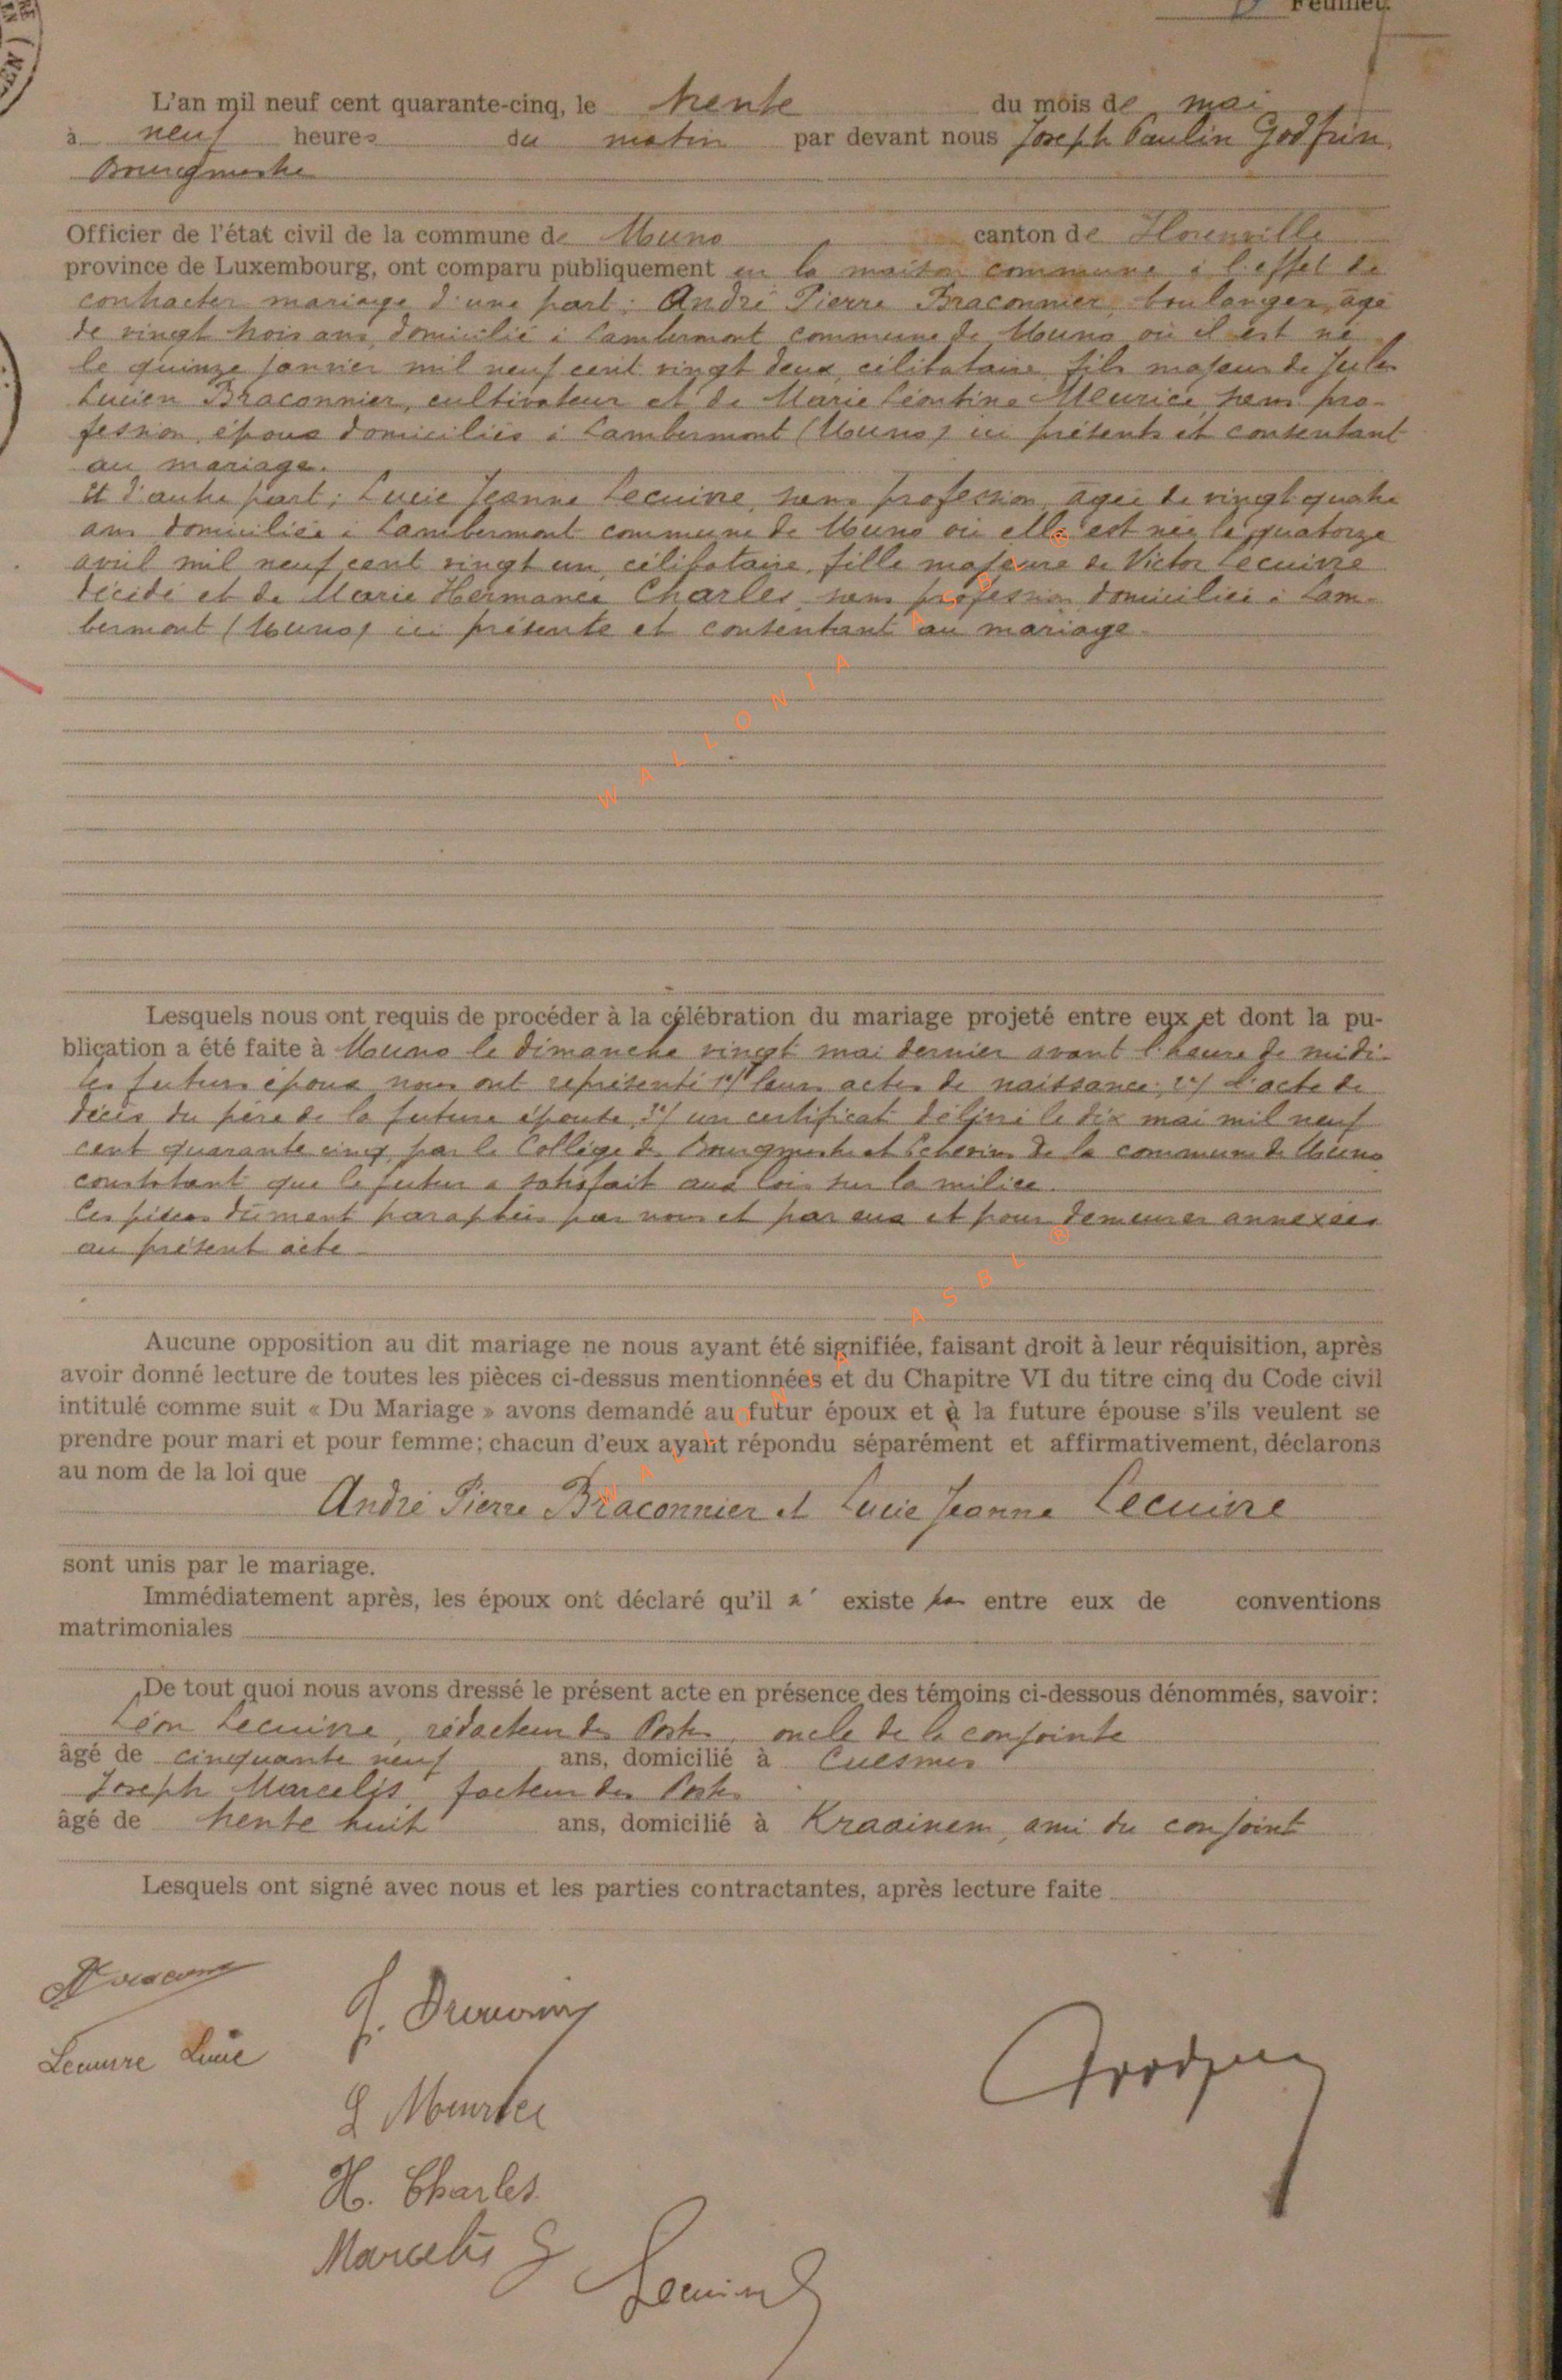 Feuillet.
L'an mil neuf cent quarante-cinq, le trente du mois de mai
à neuf heures du matin par devant nous Joseph Paulin Godfrin,
Bourgmestre
Officier de l'état civil de la commune de Muno canton de Florenville
province de Luxembourg, ont comparu publiquement en la maison commune à l'effet de
contracter mariage d'une part: André Pierre Braconnier, boulanger, âgé
de vingt trois ans, domicilié à Lambermont commune de Muno où il est né
le quinze janvier mil neuf cent vingt deux, célibataire, fils majeur de Jules
Lucien Braconnier, cultivateur et de Marie Léontine Meurice, sans pro-
fession, époux domiciliés à Lambermont (Muno) ici présents et consentant
au mariage.
Et d'autre part: Lucie Jeanne Lecuivre, sans profession, âgée de vingt quatre
ans domiciliée à Lambermont commune de Muno où elle est née le quatorze
avril mil neuf cent vingt un, célibataire, fille majeure de Victor Lecuivre
décédé et de Marie Hermance Charles, sans profession domiciliée à Lam-
bermont (Muno) ici présente et consentant au mariage.
WALLONIA ASBL ®
Lesquels nous ont requis de procéder à la célébration du mariage projeté entre eux et dont la pu-
blication a été faite à Muno le dimanche vingt mai dernier avant l'heure de midi.
Les futurs époux nous ont représenté 1°/ leurs actes de naissance; 2°/ l'acte de
décès du père de la future épouse, 3°/ un certificat délivré le dix mai mil neuf
cent quarante cinq par le Collège des Bourgmestre et Echevins de la commune de Muno
constatant que le futur a satisfait aux lois sur la milice.
Ces pièces dûment paraphées par nous et par eux et pour demeurer annexées
au présent acte.
Aucune opposition au dit mariage ne nous ayant été signifiée, faisant droit à leur réquisition, après
avoir donné lecture de toutes les pièces ci-dessus mentionnées et du Chapitre VI du titre cinq du Code civil
intitulé comme suit « Du Mariage » avons demandé au futur époux et à la future épouse s'ils veulent se
prendre pour mari et pour femme; chacun d'eux ayant répondu séparément et affirmativement, déclarons
au nom de la loi que
André Pierre Braconnier et Lucie Jeanne Lecuivre
sont unis par le mariage.
Immédiatement après, les époux ont déclaré qu'il n' existe pas entre eux de conventions
matrimoniales
De tout quoi nous avons dressé le présent acte en présence des témoins ci-dessous dénommés, savoir:
Léon Lecuivre, rédacteur des Postes, oncle de la conjointe
âgé de cinquante neuf ans, domicilié à Cuesmes
Joseph Marcelis, facteur des Postes
âgé de trente huit ans, domicilié à Kraainem, ami du conjoint
Lesquels ont signé avec nous et les parties contractantes, après lecture faite
Lecuivre Lucie
L Meurice
H. Charles
Marcelis J
Lecuivre L
Godfrin